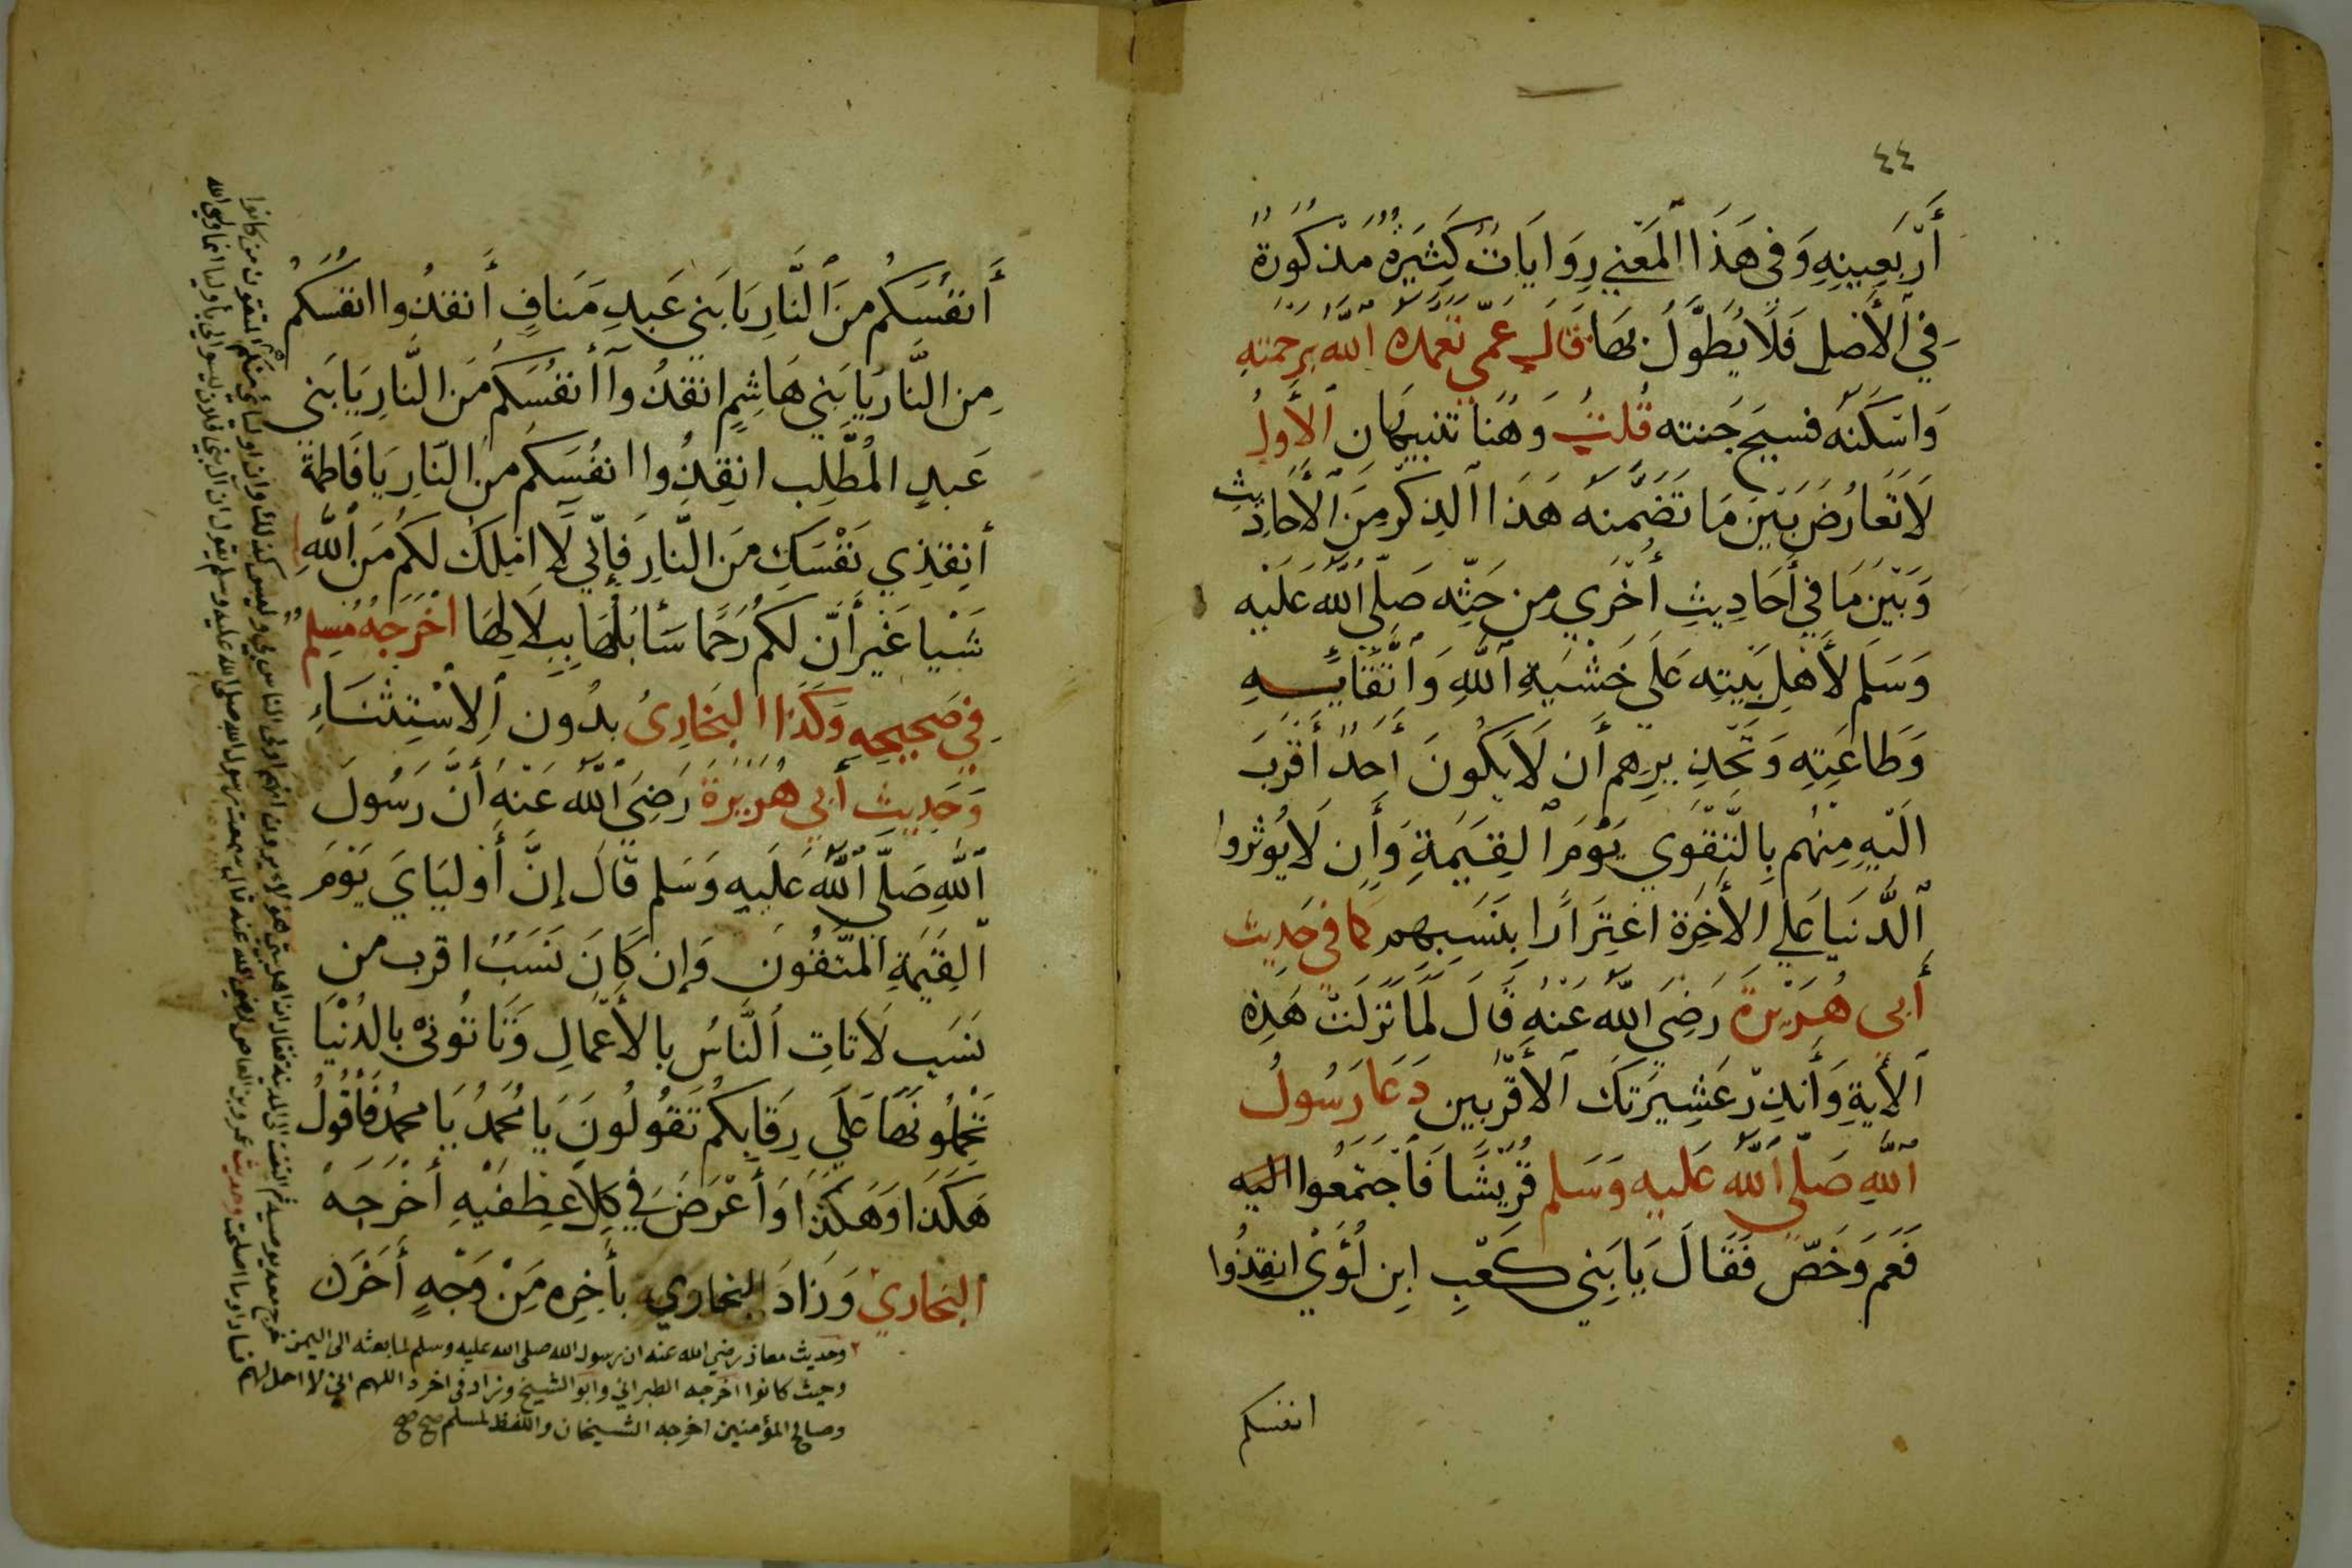 ٤٤
أَرْبَعِينِهِ وَفِى هَذَا الْمَعْنِي رِوَايَاتٌ كَثِيرَةٌ مَذْكُورَةٌ
فِي الْأَصْلِ فَلَا يُطَوَّلُ بِهَا قَالَ عَمِّي تَغَمَّدَهُ اللَّهُ بِرَحْمَتِهِ
وَاسْكَنَهُ فسيح جَنته قُلتُ وَهُنَا تنبيهَان الْأَوَلُ
لَا تَعَارُضَ بَيْنَ مَا تَضَمَّنَهُ هَذَا الذِكْرُ مِنَ الْأَحَادِيثِ
وَبَيْنَ مَا فِي أَحَادِيثِ أُخْرَي مِن حَثِّه صَلَّي اللَّهُ عَلَيْهِ
وَسَلَم لأَهْلِ بَيتِه عَلَى خَشْيَةِ اللَّهِ وَاتِّقَائِهِ
وَطَاعَتِهِ وَتَحْذِيرِهِم أَن لَا يَكُونَ أَحَدٌ أَقْرَبَ
الَيْهِ مِنْهُم بِالتَّقْوَي يَوْمَ الْقِيَمَةِ وَأَن لَا يُوثروا
الدُّنيَا عَلَي الأَخِرَةِ اغْتِرَارًا بِنَسَبِهِم كما فِي حَدِيث
أَبى هُرَيْرَةَ رَضِيَ اللَّهُ عَنْهُ قَالَ لَمَّا نَزَلَتْ هَذِهِ
الْأَيَةِ وَأَنذِرْ عَشِيرَتَكَ الأَقْرَبِين دَعَا رَسُولُ
اللَّهِ صَلَّى اللَّهُ عَليهِ وَسَلم قُرَيْشًا فَاجتَمَعُوا اليَه
فَعَم وَخَصّ فَقَالَ يَا بَنِي كَعْبِ ابنِ لُؤَيْ انقِذُوا
انفسكم
أَنفُسَكُم مِنَ النَّارِ يَا بَنِي عَبدِ مَنافٍ أَنقذُوا انفسَكُمْ
مِن النَّارِ يَا بَنِي هَاشِمٍ انقذُوا أَنفُسَكُم مِنَ النَّارِ يَا بَنِي
عَبدِ المُطَّلِب انقِذُوا انفُسَكم مِنَ النَّارِ يَا فَاطمَة
أَنقِذِي نَفْسَكِ مِنَ النَّارِ فَإِنِّي لَا امْلِكُ لكُم مِنَ اللَّهِ
شَيْيا غَيْرَ أَنَّ لكُم رَحِمًا سَأَبُلُّهَا بِبِلَالِهَا اخْرَجَهُ مُسْلِمٌ
فِي صَحِيحِهِ وَكَذَا البُخَارِىُ بدُون الِاسْتِثْنَاءِ
وَحَدِيث أَبِي هُرَيْرَة رَضِيَ اللَّهُ عَنْهُ أَنَّ رَسُولَ
اللَّهِ صَلَّى اللَّهُ عَلَيهِ وَسَلم قَالَ إِنَّ أَوْليَايَ يَوْمَ
القِيَمَةِ المُتَّقُونَ وَإِن كَانَ نَسَبٌ اقرب من
نَسَبٍ لَا تَاتِ النَّاسُ بالأَعْمَالِ وَتَاتُوني بالدُنْيَا
تَحْمِلُونَهَا عَلَي رِقَابِكُم تَقُولُونَ يَا مُحَمَدُ يَا محمدُ فَأَقُولُ
هَكَذَا وَهَكَذَا وَأَعْرَضَ فِي كِلَا عِطْفَيْهِ أَخْرَجَهُ
البُخاريُ وَزَادَ البخاري بأَخِرِه مِنْ وَجْهٍ أَخَرَ
٢ وحديث معاذ رضي الله عنه ان رسول الله صلى الله عليه وسلم لما بعثه الى اليمن
خرج معه يوصيه ثم التفت الى المدينة فقال ان اهل بيتي هؤلاء يرون انهم اولى الناس بي وليس كذلك وان اوليائي منكم المتقون من كانوا
وحيث كانوا اخرجه الطبراني وابو الشيخ وزاد فى اخره اللهم اني لا احل لهم
فساد ما اصلحت وحديث عمرو بن العاص رضي الله عنه قال سمعت رسول الله صلى الله عليه وسلم يقول ان ال بني فلان ليسوا لي باوليا انما وليي الله
وصالح المؤمنين اخرجه الشيخان واللفظ لمسلم صح صح